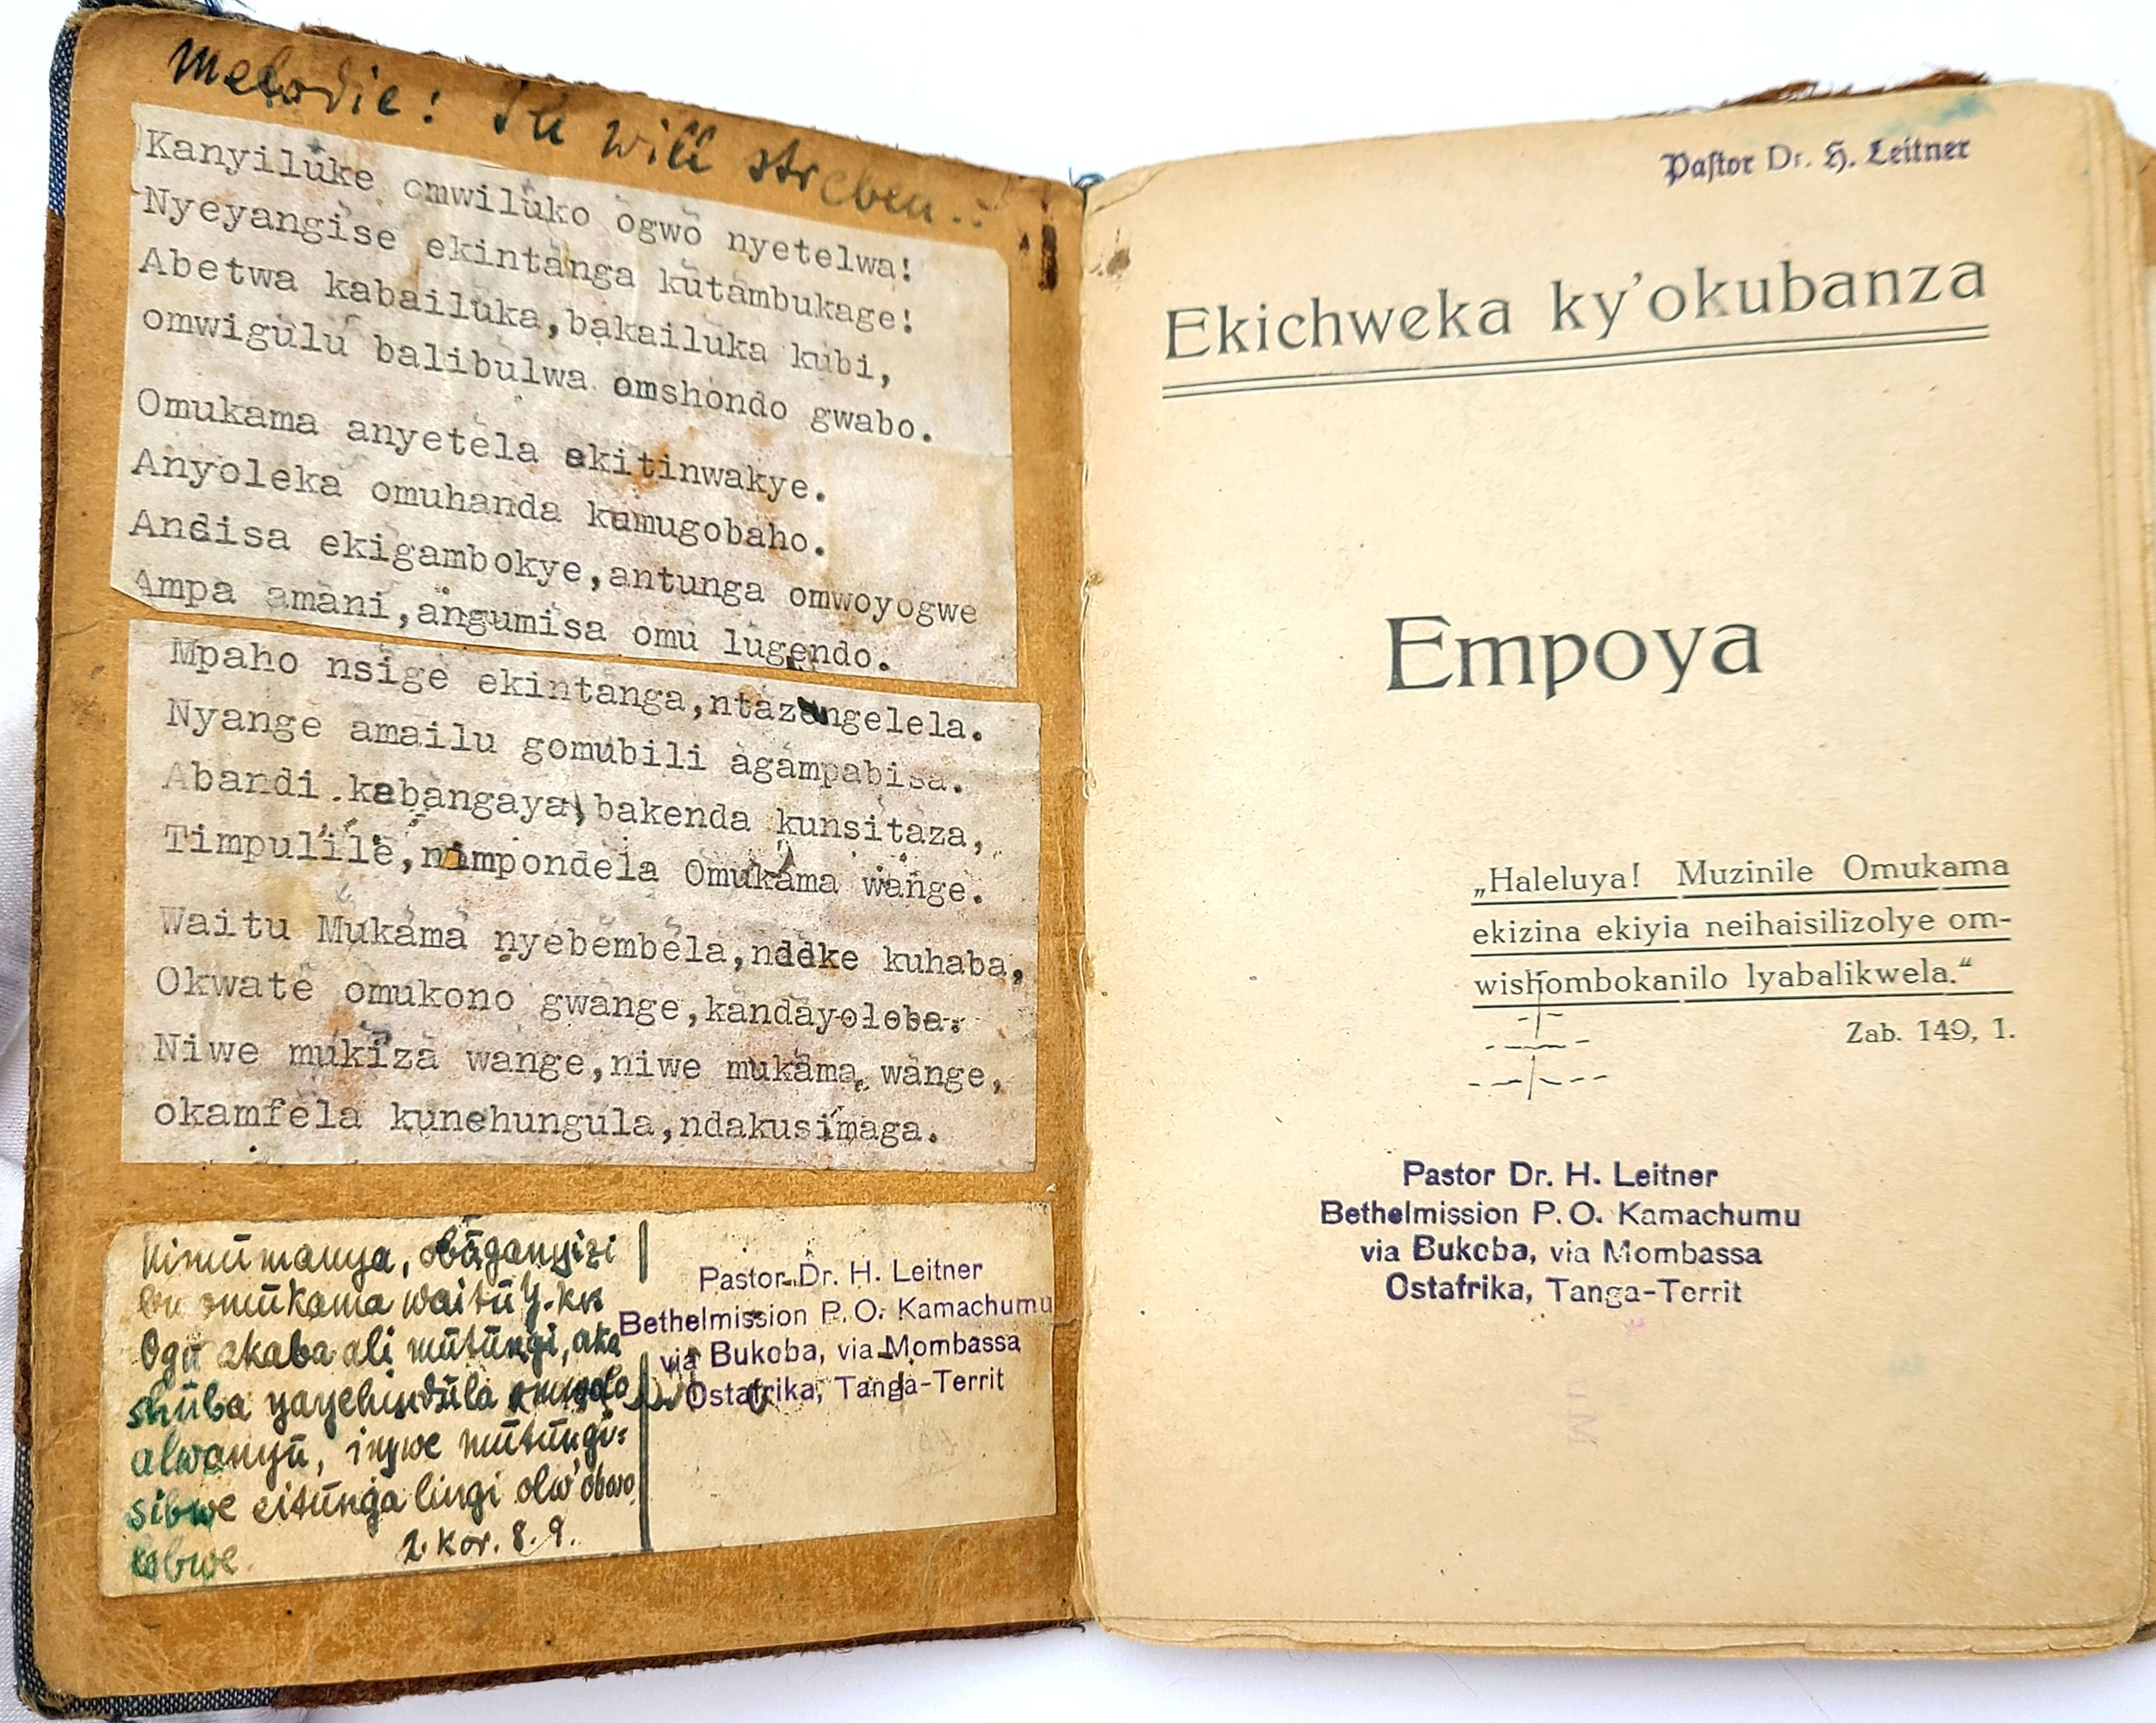 Melodie: Ich will streben..
Kanyiluke omwiluko ogwo nyetelwa!
Nyeyangise ekintanga kutambukage!
Abetwa kabailuka, bakailuka kubi,
omwigulu balibulwa omshondo gwabo.
Omukama anyetela ekitinwakye.
Anyoleka omuhanda kumugobaho.
Andisa ekigambokye, antunga omwoyogwe
Ampa amani, angumisa omu lugendo.
Mpaho nsige ekintanga, ntazengelela.
Nyange amailu gomubili agampabisa.
Abandi kabangaya, bakenda kunsitaza,
Timpulile, nimpondela Omukama wange.
Waitu Mukama nyebembela, ndeke kuhaba,
Okwate omukono gwange, kandayoleba.
Niwe mukiza wange, niwe mukama wange,
okamfela kunchungula, ndakusimaga.
Nimūmanya, obūganyizi
bw omūkama waitū Y. kk
Ogū akaba ali mūtūngi, aka
shūba yayehindūla
alwanyū, inywe mūtūngi=
sibwe eitūnga lingi olw'obwo
lobwe.
2. Kor. 8. 9.
Pastor Dr. H. Leitner
Bethelmission P.O. Kamachumu
via Bukoba, via Mombassa
Ostafrika, Tanga-Territ
Pastor Dr. H. Leitner
Ekichweka ky'okubanza
Empoya
„Haleluya! Muzinile Omukama
ekizina ekiyia neihaisilizolye om-
wishombokanilo lyabalikwela.“
Zab. 149, 1.
Pastor Dr. H. Leitner
Bethelmission P.O. Kamachumu
via Bukoba, via Mombassa
Ostafrika, Tanga-Territ